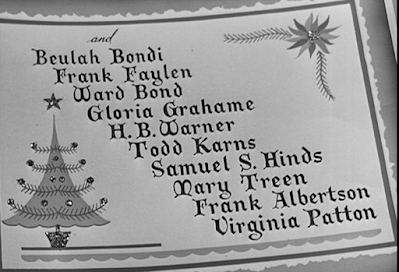 and
Beulah Bondi
Frank Faylen
Ward Bond
Gloria Grahame
H.B. Warner
Todd Karns
Samuel S. Hinds
Mary Treen
Frank Albertson
Virginia Patton